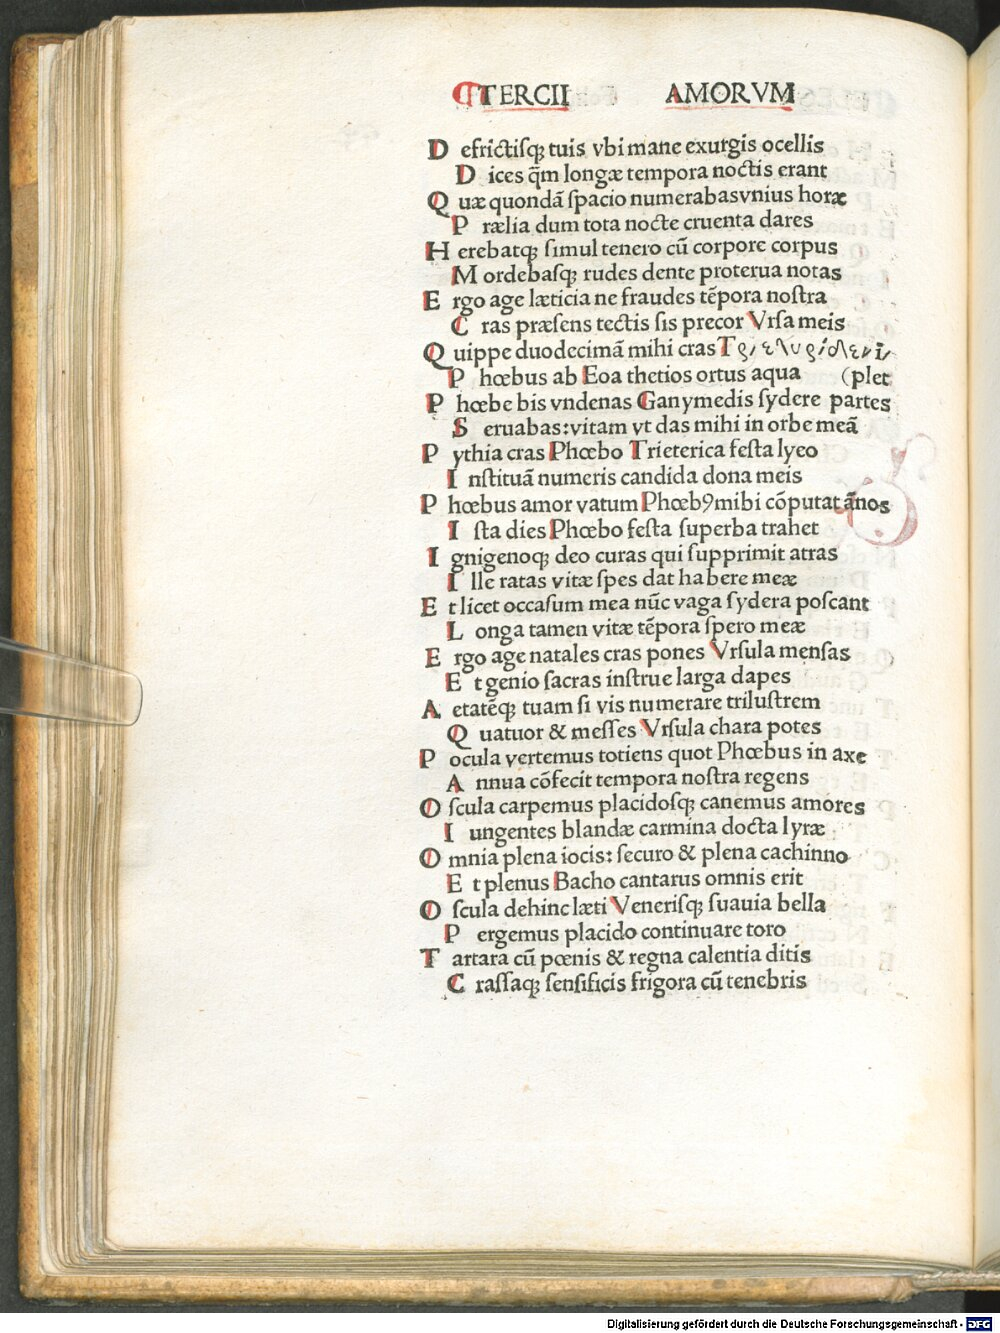 TERCII AMORVM
D efrictiſqꝫ tuis vbi mane exurgis ocellis
D ices q̃m longæ tempora noctis erant
Q uæ quondã ſpacio numerabasvnius horæ
P rælia dum tota nocte cruenta dares
H erebatqꝫ ſimul tenero cũ corpore corpus
M ordebaſqꝫ rudes dente proterua notas
E rgo age læticia ne fraudes tẽpora noſtra
C ras præſens tectis ſis precor Vrſa meis
Q uippe duodecimã mihi cras
P hœbus ab Eoa thetios ortus aqua (plet
P hœbe bis vndenas Ganymedis ſydere partes
S eruabas:vitam vt das mihi in orbe meã
P ythia cras Phœbo Trieterica feſta lyeo
I nſtituã numeris candida dona meis
P hœbus amor vatum Phœbꝰ mihi cõputat ãnos
I ſta dies Phœbo feſta ſuperba trahet
I gnigenoqꝫ deo curas qui ſupprimit atras
I lle ratas vitæ ſpes dat habere meæ
E t licet occaſum mea nũc vaga ſydera poſcant
L onga tamen vitæ tẽpora ſpero meæ
E rgo age natales cras pones Vrſula menſas
E t genio ſacras inſtrue larga dapes
A etatẽqꝫ tuam ſi vis numerare triluſtrem
Q uatuor & meſſes Vrſula chara potes
P ocula vertemus totiens quot Phœbus in axe
A nnua cõfecit tempora noſtra regens
O ſcula carpemus placidoſqꝫ canemus amores
I ungentes blandæ carmina docta lyræ
O mnia plena iocis: ſecuro & plena cachinno
E t plenus Bacho cantarus omnis erit
O ſcula dehinc læti Veneriſqꝫ ſuauia bella
P ergemus placido continuare toro
T artara cũ pœnis & regna calentia ditis
C raſſaqꝫ ſenſificis frigora cũ tenebris
Digitalisierung gefördert durch die Deutsche Forschungsgemeinschaft - DFG